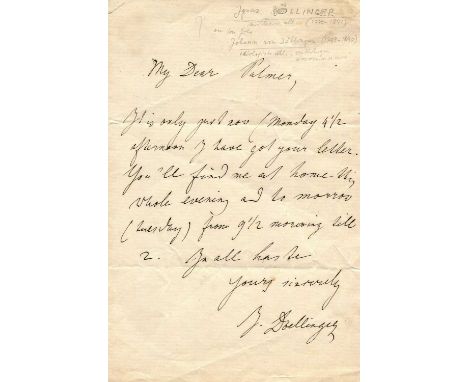 Ignaz DÖLLINGER
ou son fils
Johann von Döllinger
My Dear Palmer,
It is only just now (Monday 4 1/2
afternoon I have got your letter.
You'll find me at home this
whole evening and to morrow
(tuesday) from 9 1/2 morning till
2. In all haste
Yours sincerely
J. Doellinger